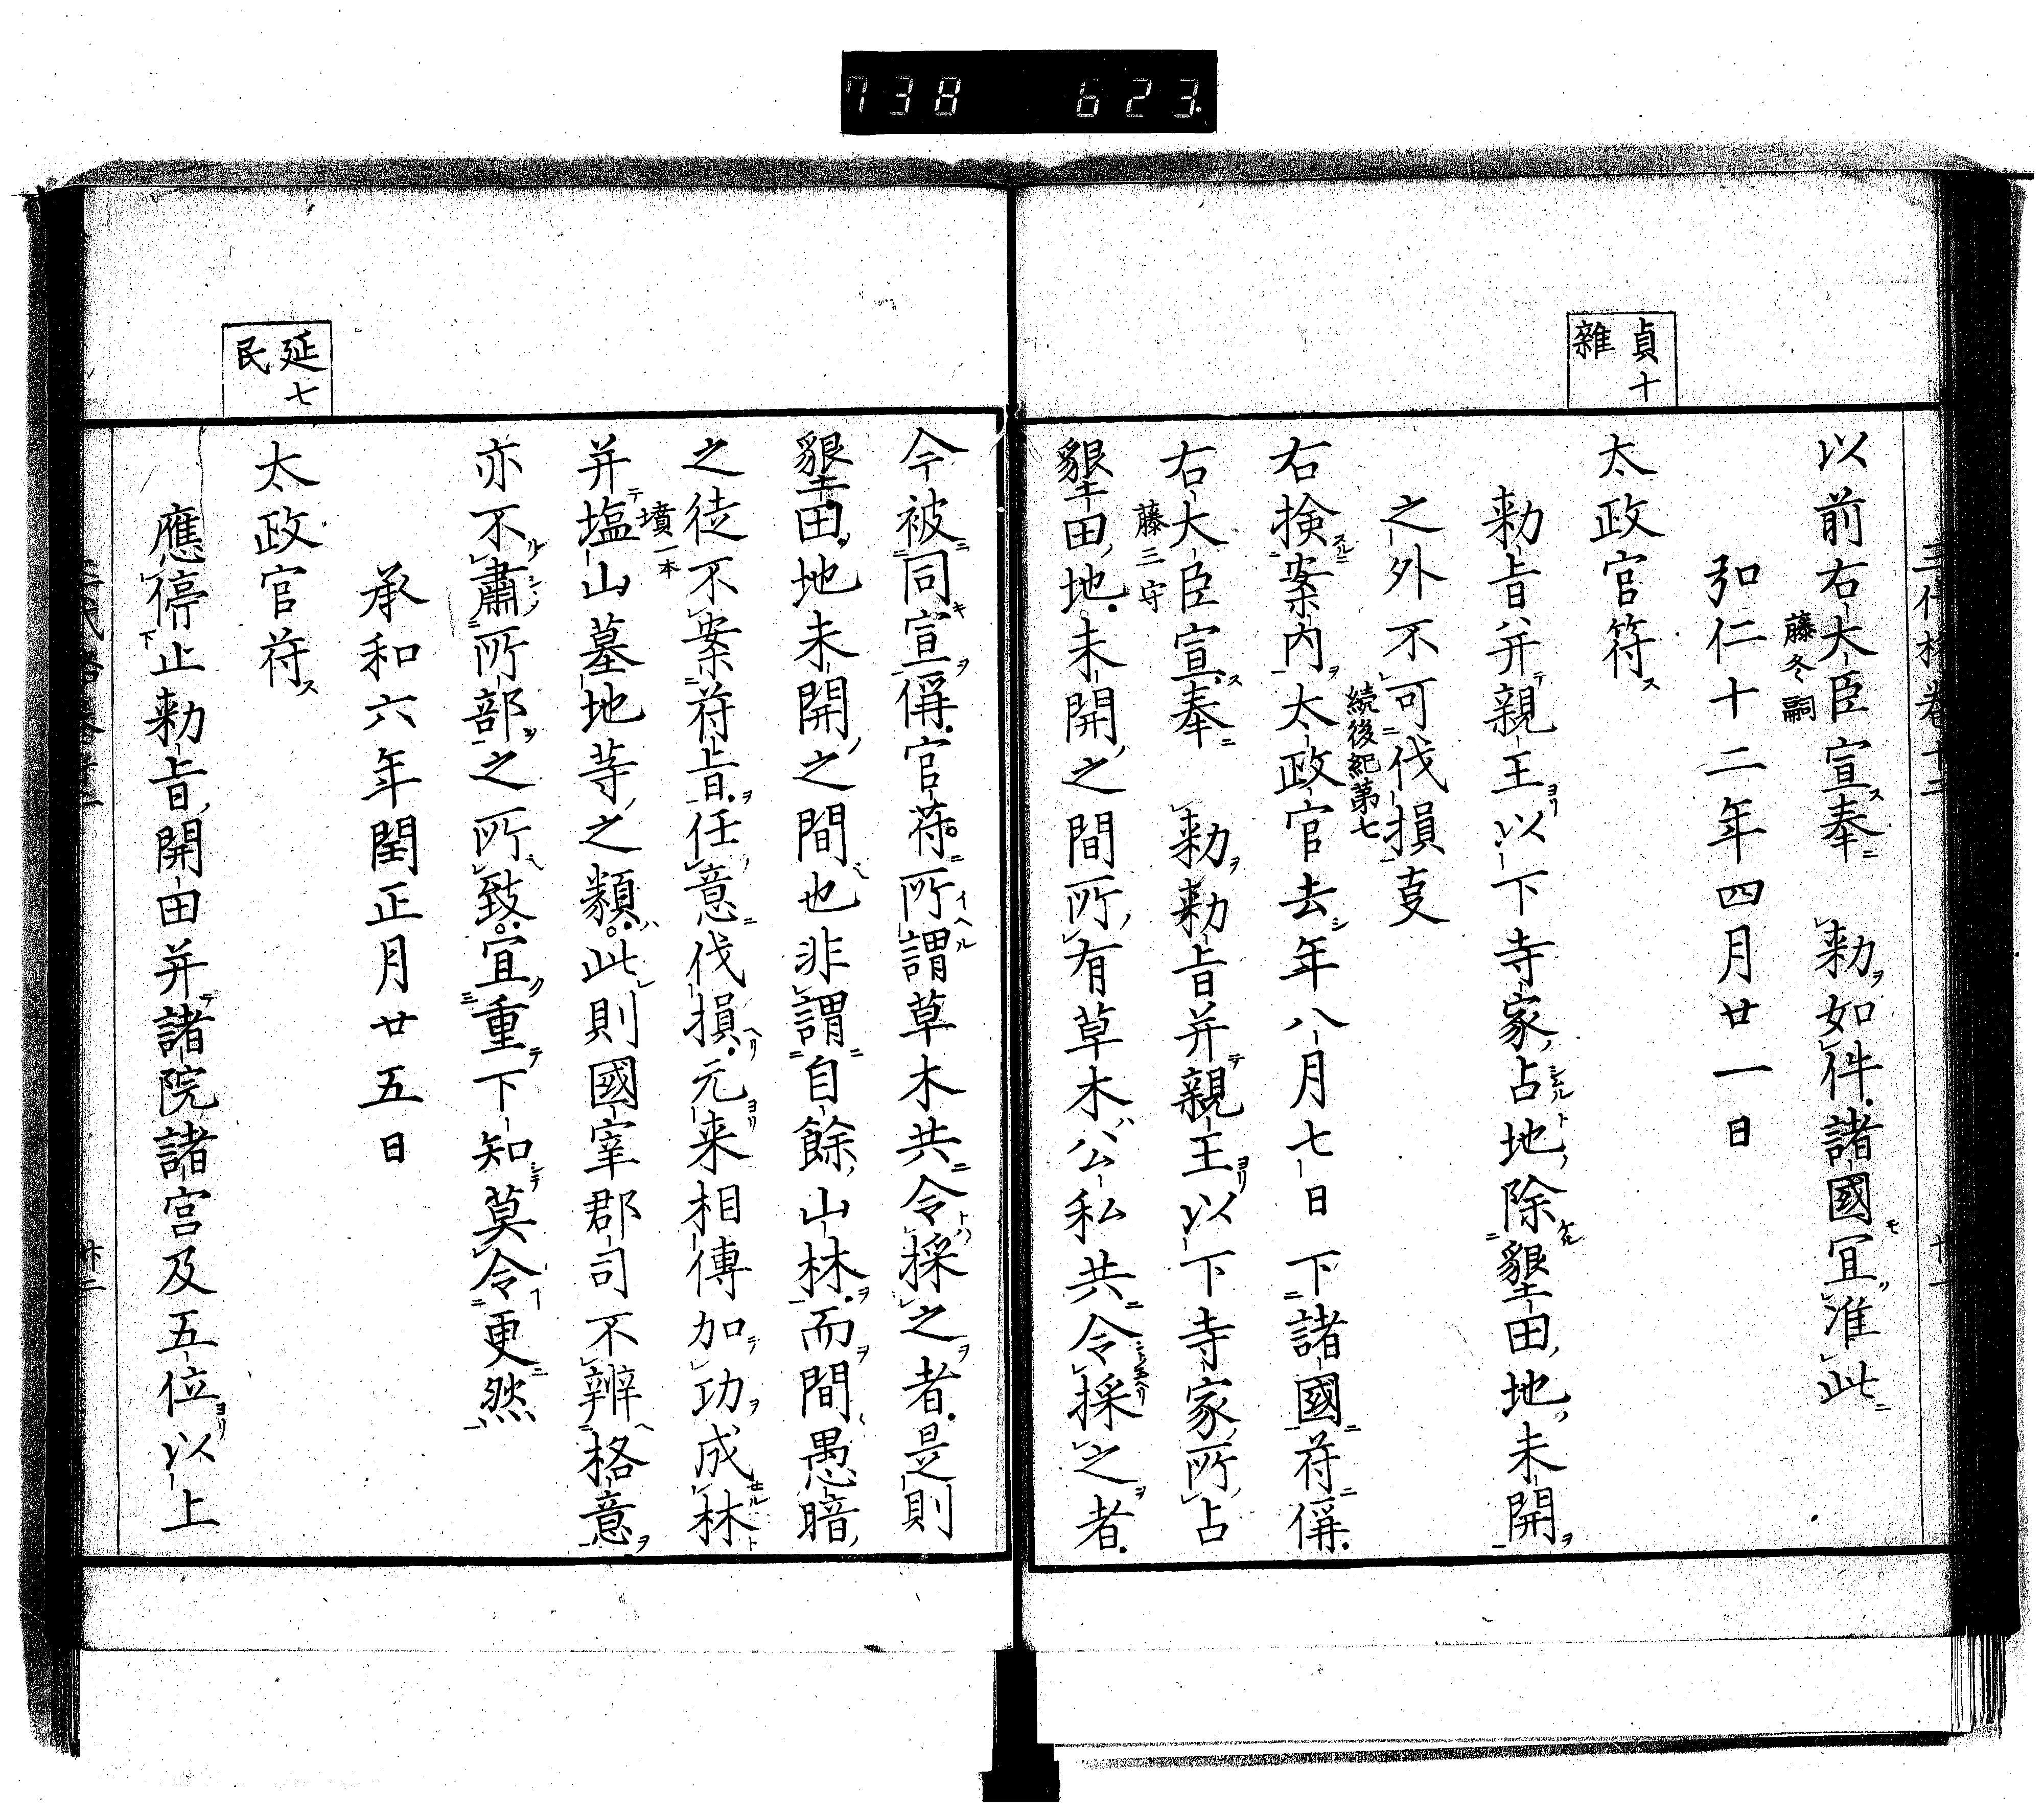 738 623
貞十
雜
以前右大臣宣奉 勅如件諸國宜准此
藤冬嗣
弘仁十二年四月廿一日
太政官符
勅旨并親王以下寺家占地除墾田地未開
之外不可伐損叓
続後紀第七
右撿案内太政官去年八月七日下諸國符偁
右大臣宣奉 勅勅旨并親王以下寺家所占
藤三守
墾田地未開之間所有草木公私共令採之者
延七
民
今被同宣偁官符所謂草木共令採之者是則
墾田地未開之間也非謂自餘山林而間愚暗
之徒不案符旨任意伐損元来相傳加功成林
墳一本
并塩山墓地等之類此則國宰郡司不辨格意
亦不肅所部之所致宜重下知莫令更然
承和六年閏正月廿五日
太政官符
應停止勅旨開田并諸院諸宮及五位以上